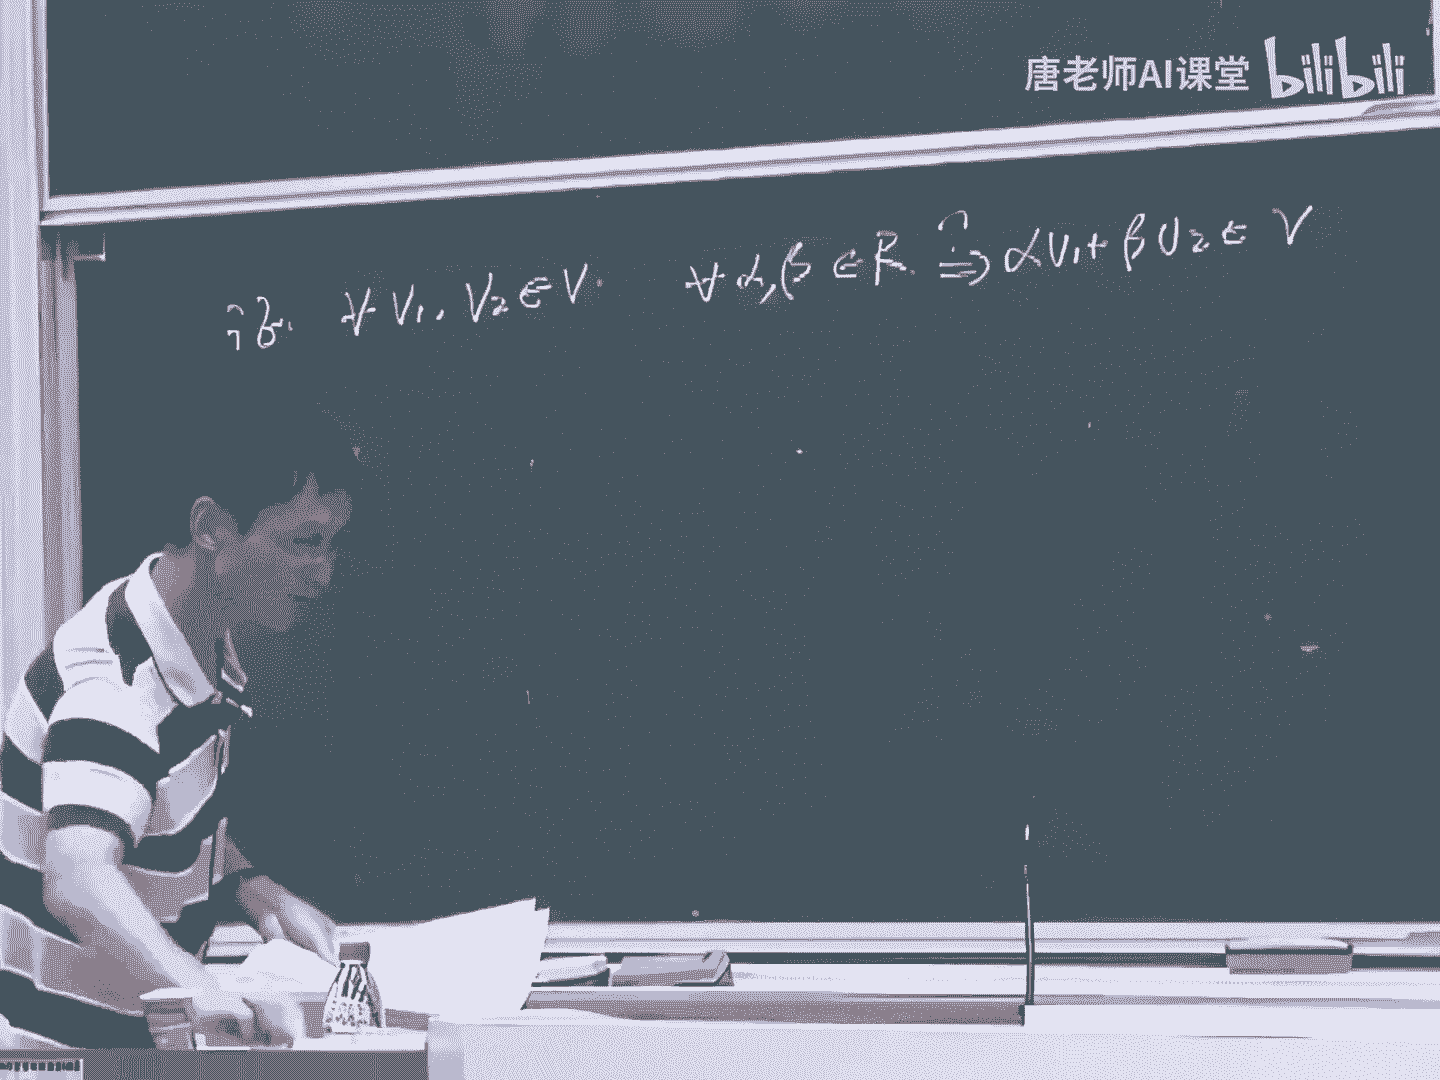 唐老师AI课堂 bilibili
证. ∀ V₁, V₂ ∈ V. ∀ α, β ∈ R. ?⇒ αV₁ + βV₂ ∈ V